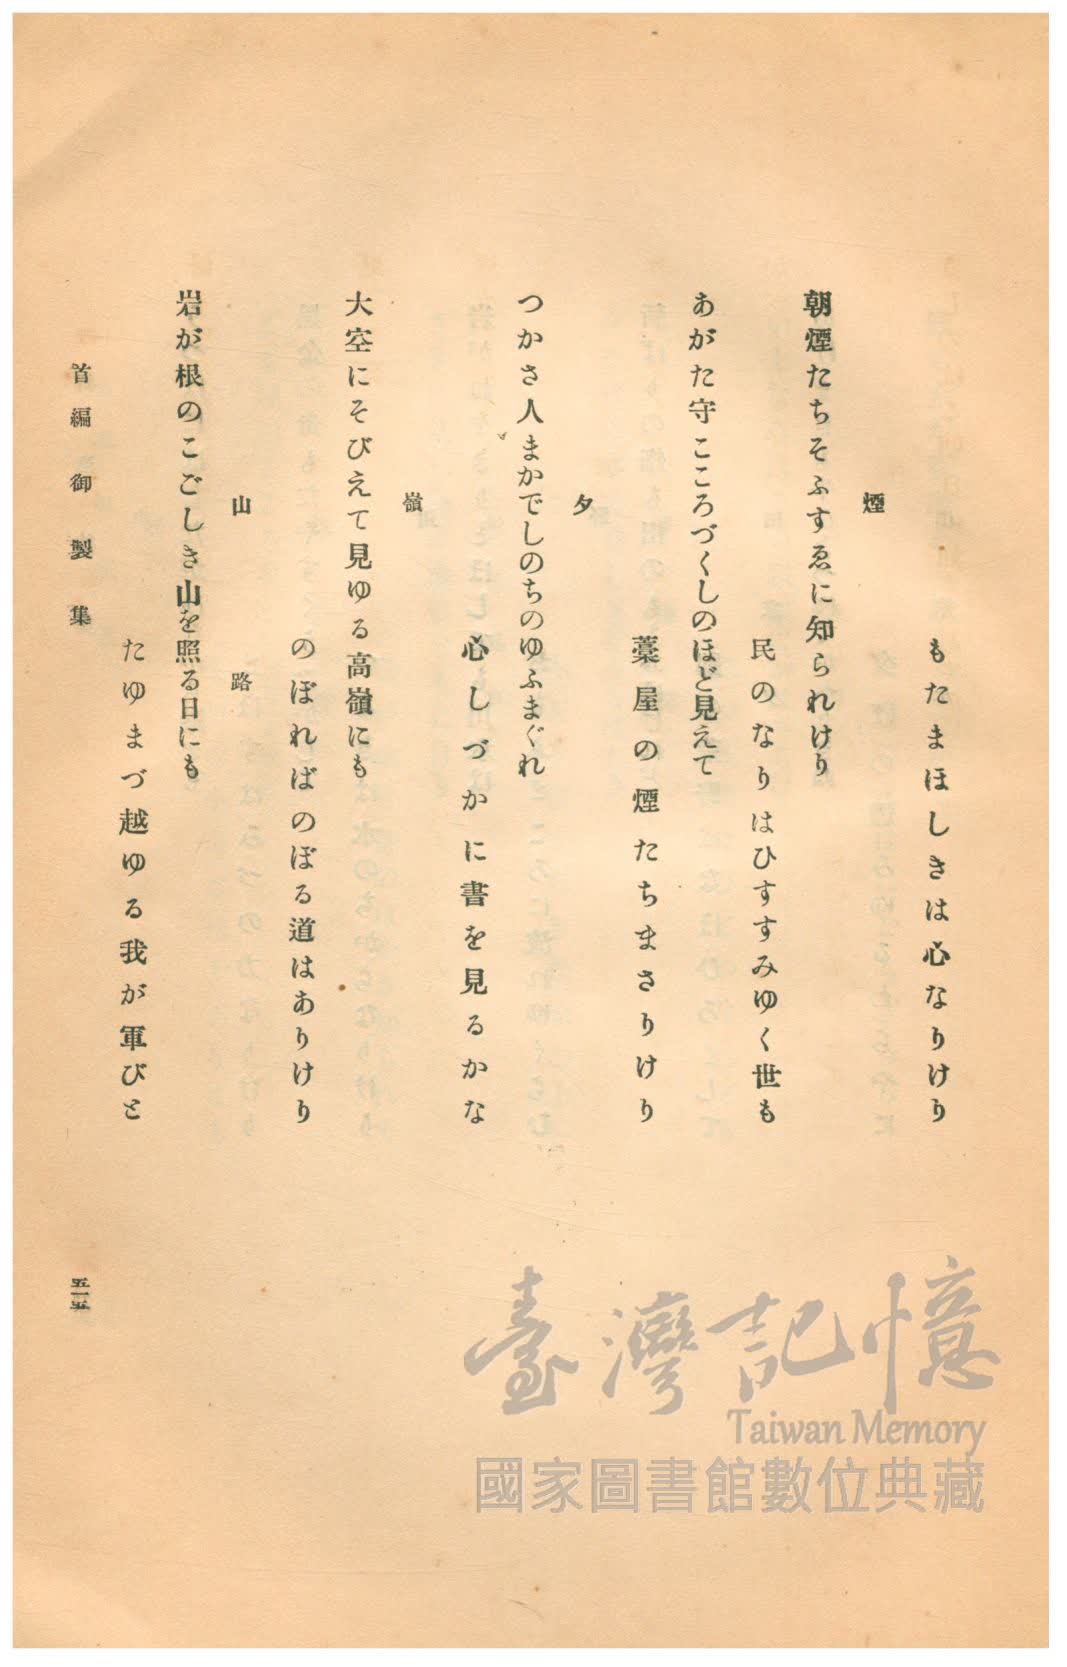 もたまほしきは心なりけり
煙
朝煙たちそふすゑに知られけり
民のなりはひすすみゆく世も
あがた守こころづくしのほど見えて
藁屋の煙たちまさりけり
夕
つかさ人まかでしのちのゆふまぐれ
心しづかに書を見るかな
嶺
大空にそびえて見ゆる高嶺にも
のぼればのぼる道はありけり
山路
岩が根のこごしき山を照る日にも
たゆまづ越ゆる我が軍びと
首編御製集
五一五
臺灣記憶
Taiwan Memory
國家圖書館數位典藏